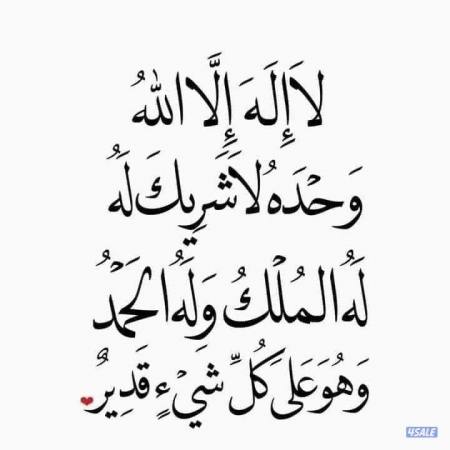 لَا إِلَهَ إِلَّا اللهُ
وَحْدَهُ لَا شَرِيكَ لَهُ
لَهُ المُلْكُ وَلَهُ الحَمْدُ
وَهُوَ عَلَى كُلِّ شَيْءٍ قَدِيرٌ
4SALE